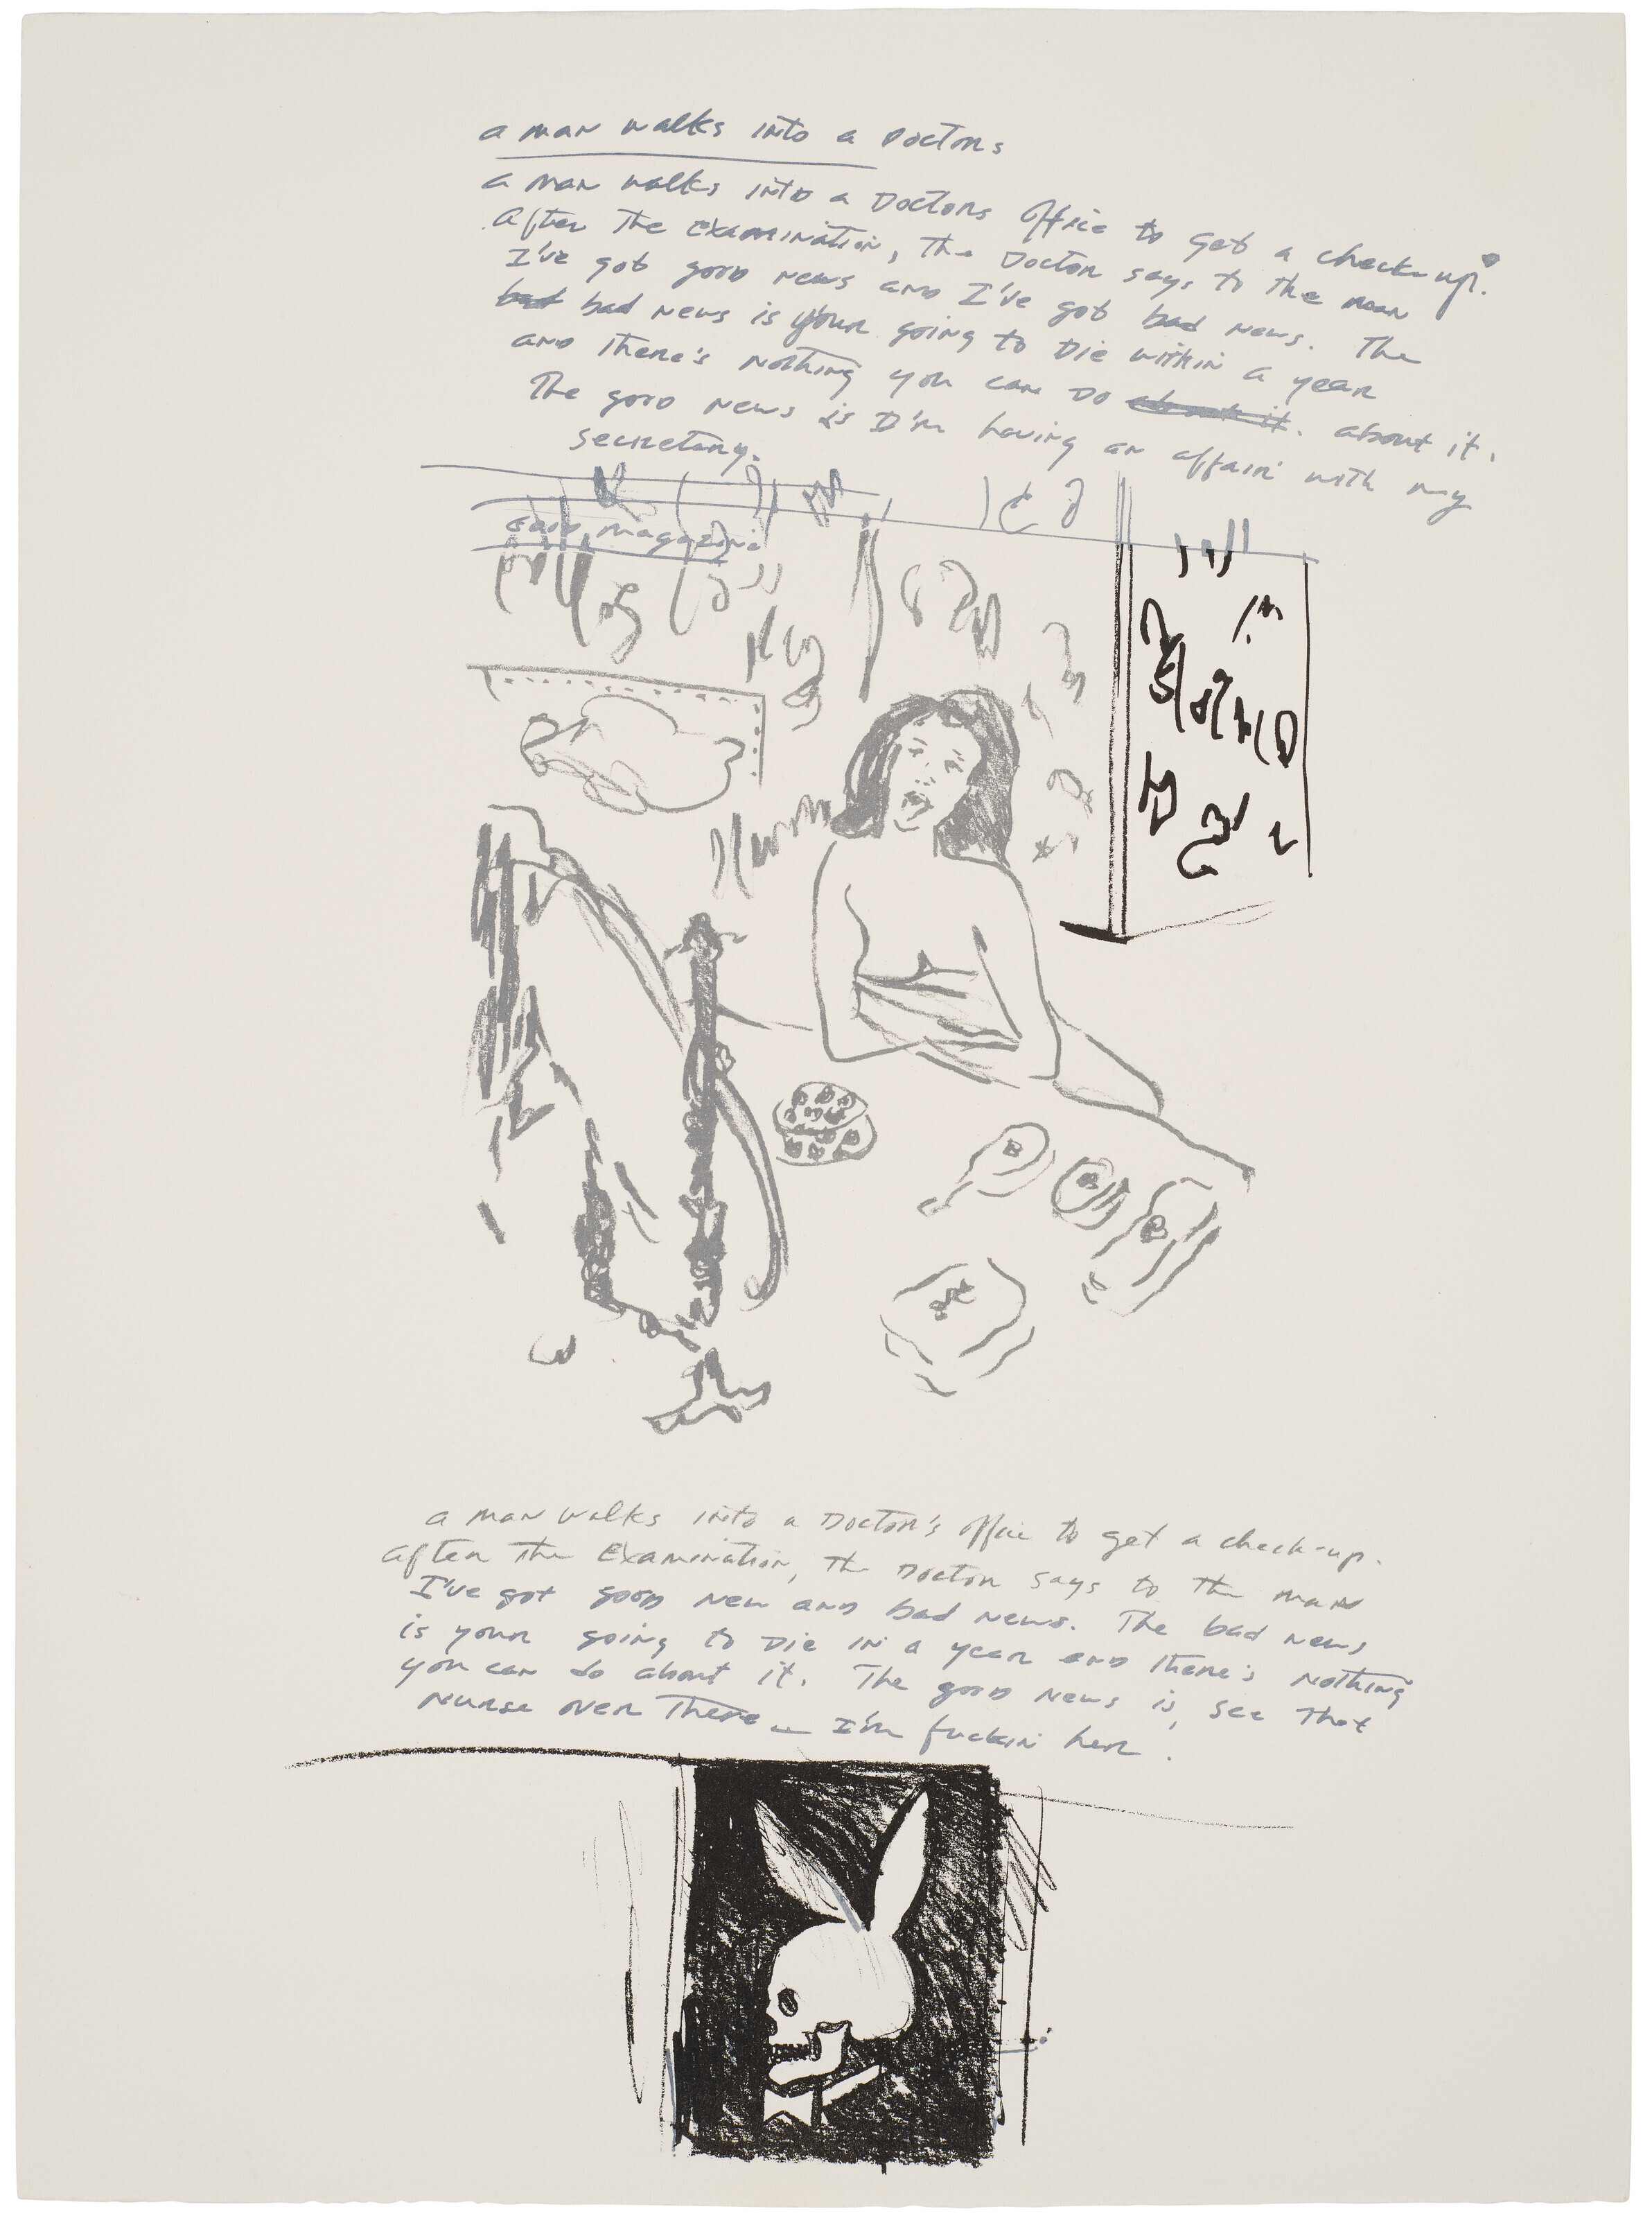 a man walks into a Doctors
a man walks into a Doctors office to get a check-up.
After the examination, the Doctor says to the man
I've got good news and I've got bad news. The
bad bad news is your going to Die within a year
and there's nothing you can do about it. about it.
The good news is I'm having an affair with my
secretary.
magazine
a man walks into a Doctor's office to get a check-up.
after the Examination, the Doctor says to the man
I've got good new and bad news. The bad news
is your going to Die in a year and there's nothing
you can do about it. The good news is, see that
nurse over there — I'm fuckin her.